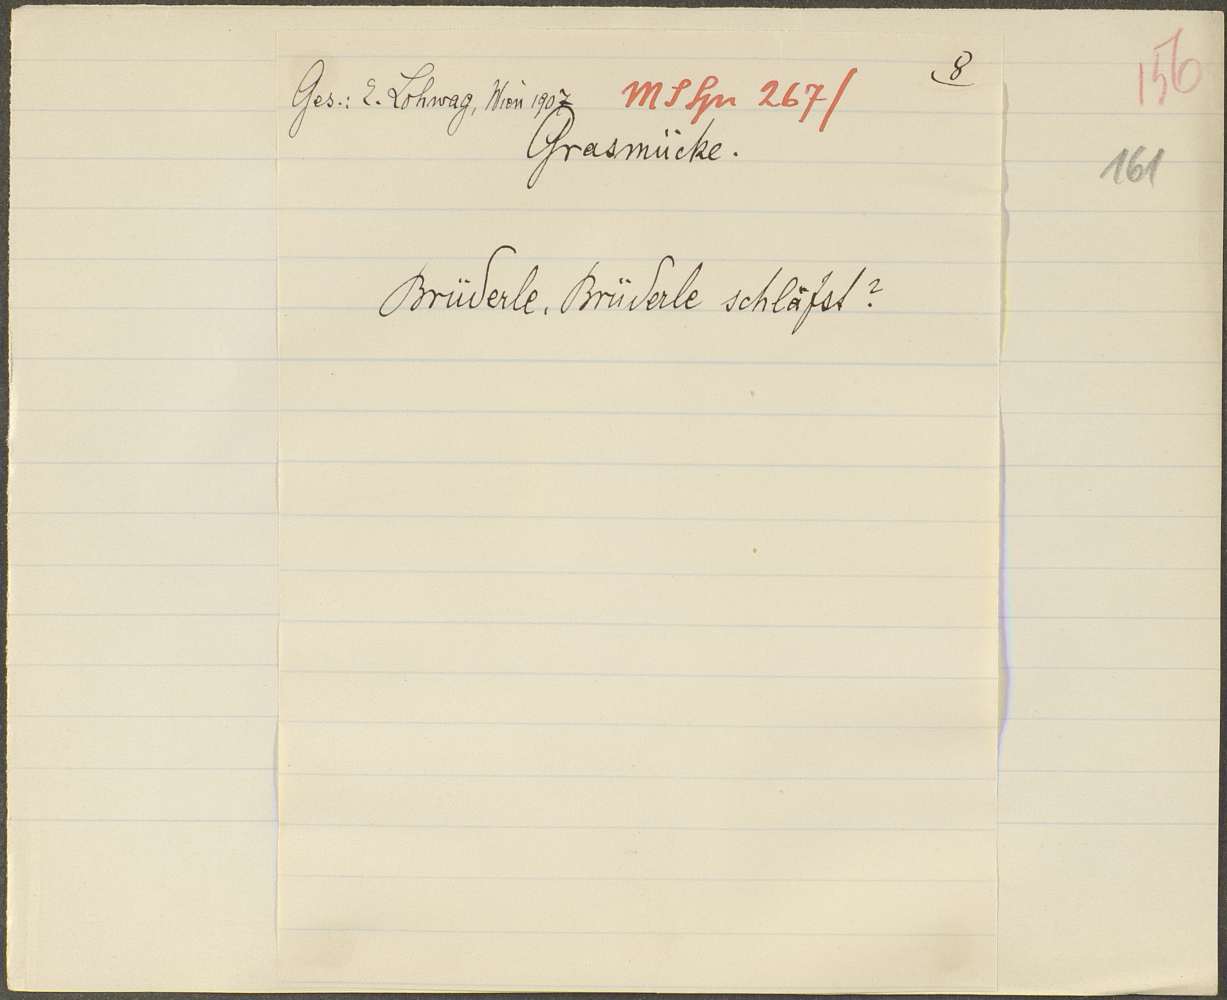 8
156
Ges.: E. Lohwag, Wien 1907 MS Spr 267/
Grasmücke.
161
Brüderle, Brüderle schläfst?